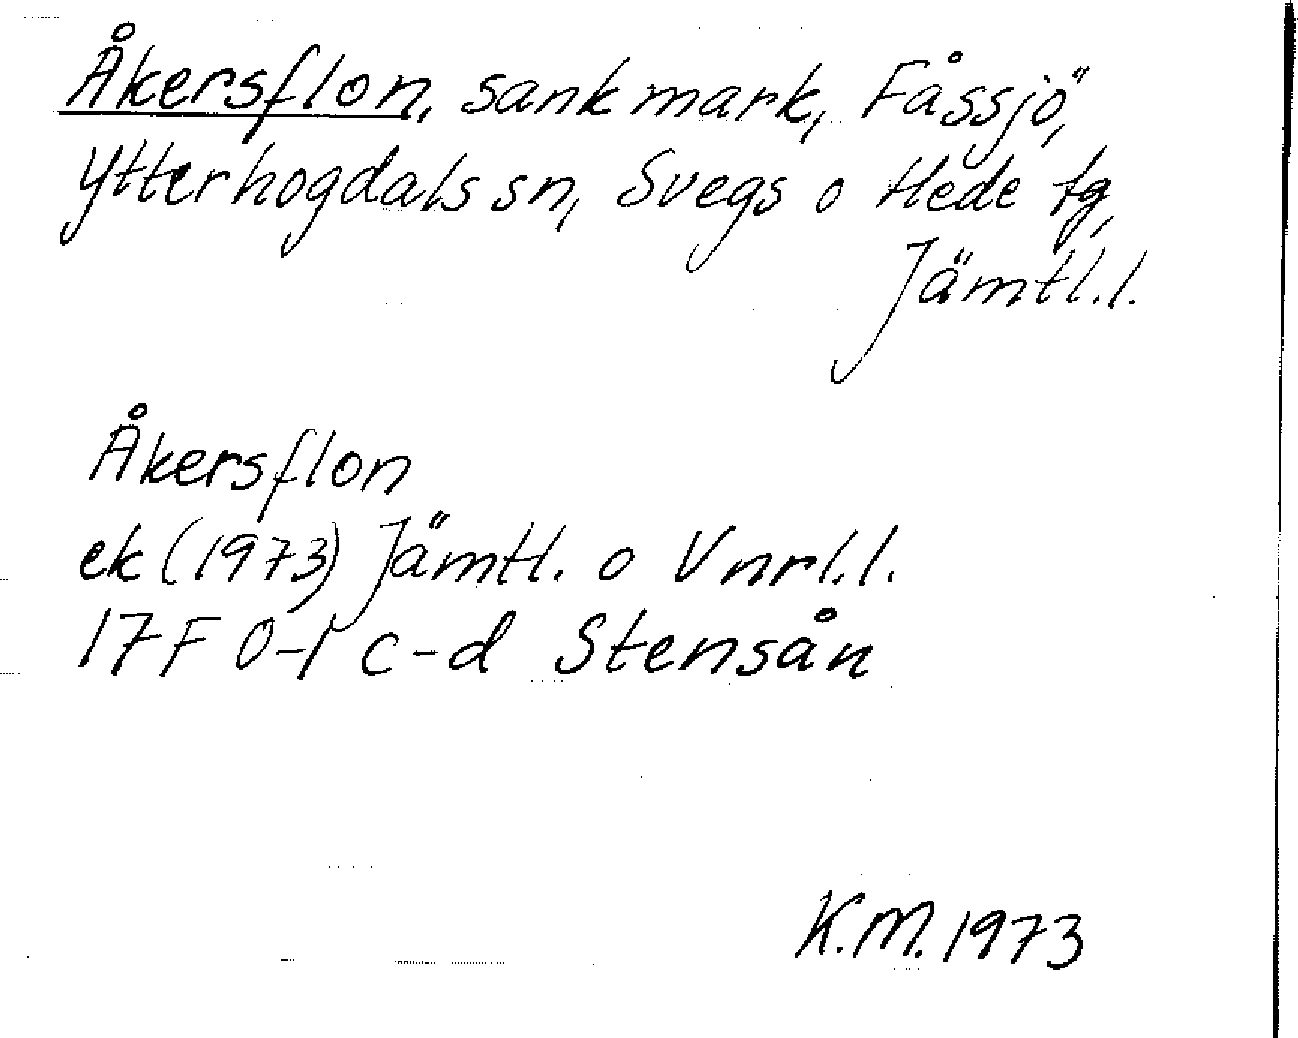 Åkersflon, sankmark, Fåssjö,
Ytterhogdals sn, Svegs o Hede tg,
Jämtl.l.
Åkersflon
ek (1973) Jämtl. o Vnrl.l.
17F 0-1 c-d Stensån
K.M. 1973